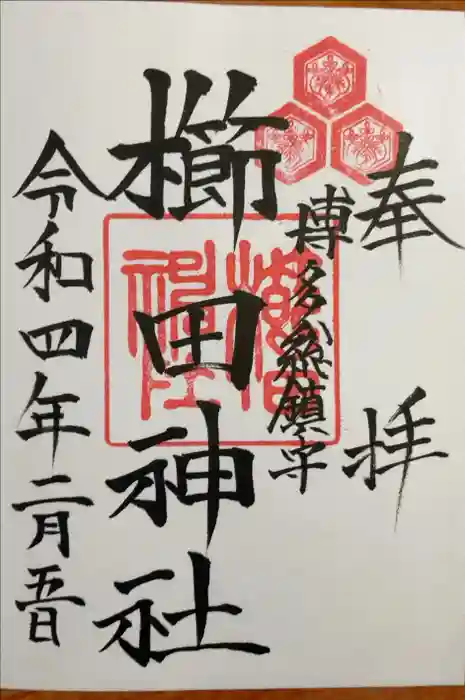 奉拝
博多総鎮守
櫛田神社
令和四年二月五日
櫛田
神社